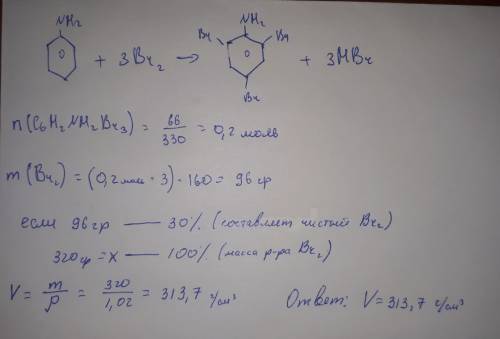 NH₂ NH₂
Br Br
+ 3Br₂ → + 3HBr
Br
n(C₆H₂NH₂Br₃) = 66/330 = 0,2 моль
m(Br₂) = (0,2 моль · 3) · 160 = 96 гр
если 96 гр — 30% (составляет чистый Br₂)
320 гр = x — 100% (масса р-ра Br₂)
V = m/ρ = 320/1,02 = 313,7 г/см³ Ответ: V = 313,7 г/см³